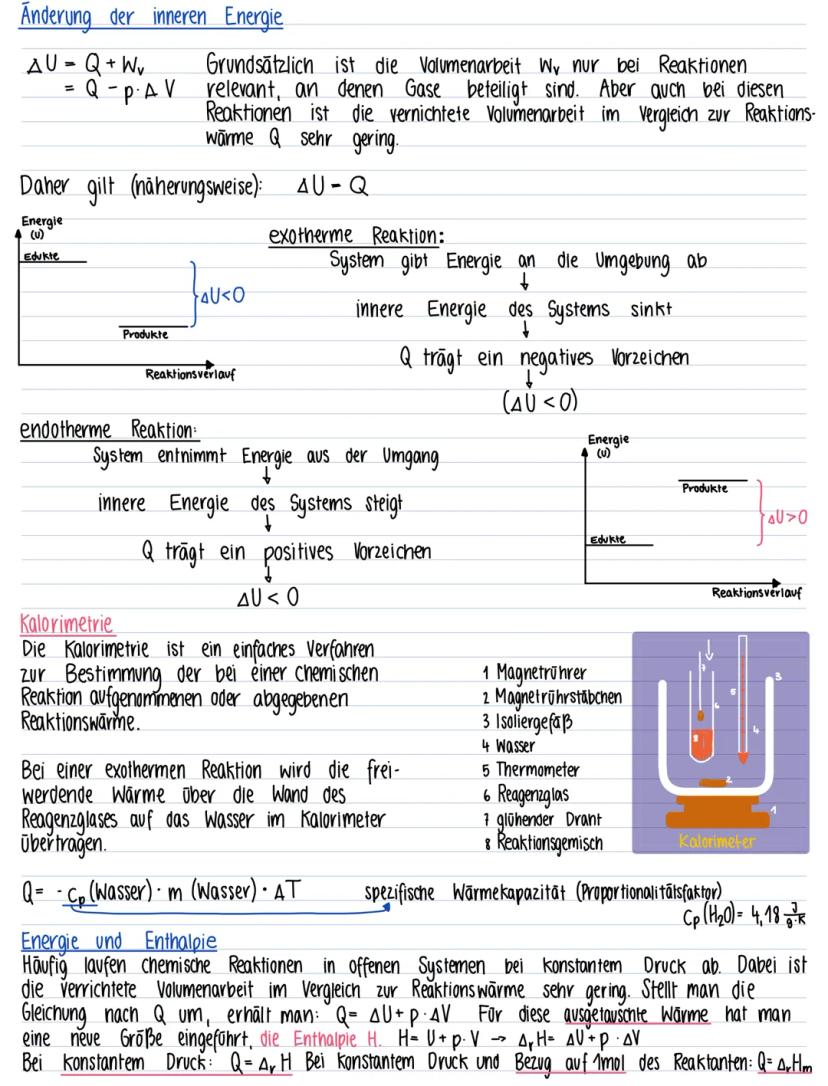 Änderung der inneren Energie
ΔU = Q + Wv Grundsätzlich ist die Volumenarbeit Wv nur bei Reaktionen
= Q - p·ΔV relevant, an denen Gase beteiligt sind. Aber auch bei diesen
Reaktionen ist die vernichtete Volumenarbeit im Vergleich zur Reaktions-
wärme Q sehr gering.
Daher gilt (näherungsweise): ΔU - Q
Energie
(U)
Edukte
ΔU<0
Produkte
Reaktionsverlauf
exotherme Reaktion:
System gibt Energie an die Umgebung ab
↓
innere Energie des Systems sinkt
↓
Q trägt ein negatives Vorzeichen
↓
(ΔU < 0)
endotherme Reaktion:
System entnimmt Energie aus der Umgang
↓
innere Energie des Systems steigt
↓
Q trägt ein positives Vorzeichen
↓
ΔU < 0
Energie
(U)
Produkte
ΔU>0
Edukte
Reaktionsverlauf
Kalorimetrie
Die Kalorimetrie ist ein einfaches Verfahren
zur Bestimmung der bei einer chemischen
Reaktion aufgenommenen oder abgegebenen
Reaktionswärme.
Bei einer exothermen Reaktion wird die frei-
werdende Wärme über die Wand des
Reagenzglases auf das Wasser im Kalorimeter
übertragen.
1 Magnetrührer
2 Magnetrührstäbchen
3 Isoliergefäß
4 Wasser
5 Thermometer
6 Reagenzglas
7 glühender Draht
8 Reaktionsgemisch
7
3
5
6
4
8
2
1
Kalorimeter
Q= - cp (Wasser) · m (Wasser) · ΔT spezifische Wärmekapazität (Proportionalitätsfaktor)
Cp (H₂O) = 4,18 J/g·K
Energie und Enthalpie
Häufig laufen chemische Reaktionen in offenen Systemen bei konstantem Druck ab. Dabei ist
die verrichtete Volumenarbeit im Vergleich zur Reaktionswärme sehr gering. Stellt man die
Gleichung nach Q um, erhält man: Q= ΔU+ p·ΔV Für diese ausgetauschte Wärme hat man
eine neue Größe eingeführt, die Enthalpie H. H= U+p·V → ΔrH= ΔU+p·ΔV
Bei konstantem Druck: Q=ΔrH Bei konstantem Druck und Bezug auf 1mol des Reaktanten: Q=ΔrHm